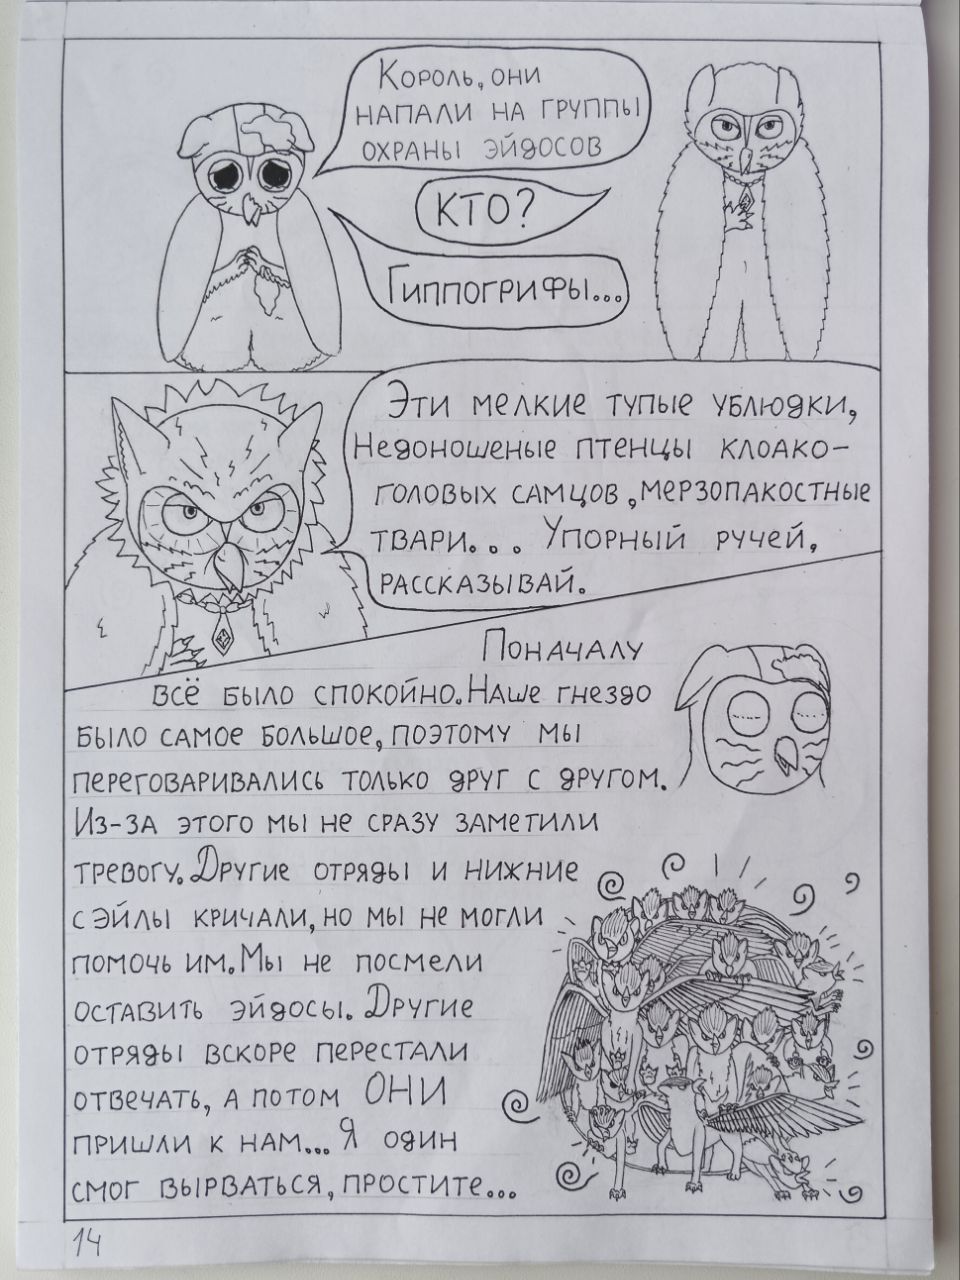 Король, они
напали на группы
охраны эйдосов
Кто?
Гиппогрифы...
Эти мелкие тупые ублюдки,
недоношеные птенцы клоако-
головых самцов, мерзопакостные
твари... Упорный ручей,
рассказывай.
Поначалу
всё было спокойно. Наше гнездо
было самое большое, поэтому мы
переговаривались только друг с другом.
Из-за этого мы не сразу заметили
тревогу. Другие отряды и нижние
сэйлы кричали, но мы не могли
помочь им. Мы не посмели
оставить эйдосы. Другие
отряды вскоре перестали
отвечать, а потом ОНИ
пришли к нам... Я один
смог вырваться, простите...
14